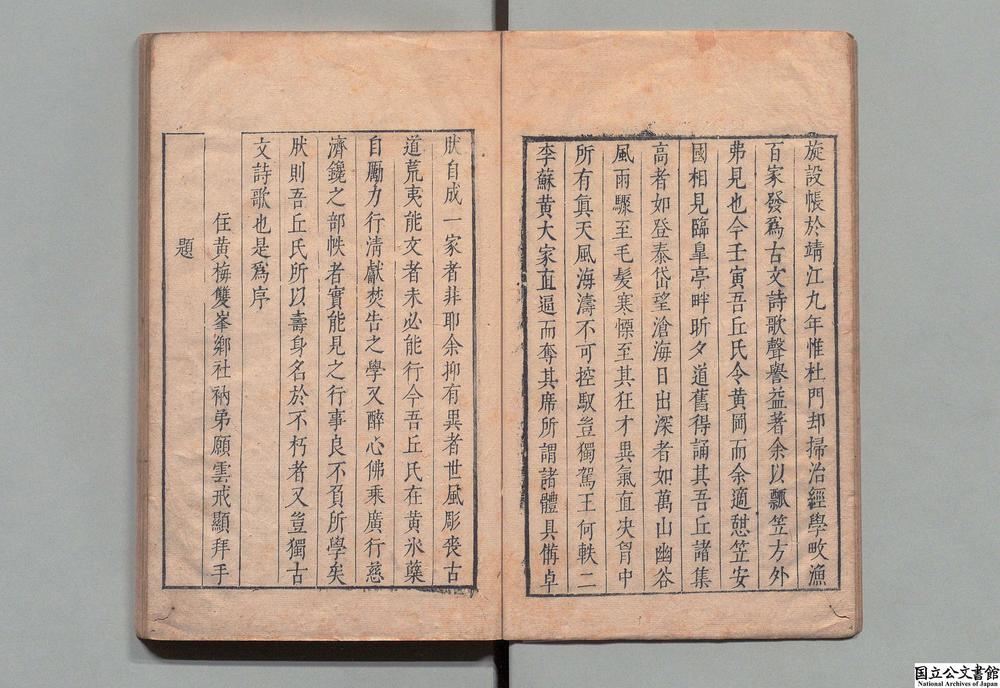 旋設帳於靖江九年惟杜門却掃治經學畋漁
百家發爲古文詩歌聲譽益著余以瓢笠方外
弗見也今壬寅吾丘氏令黄岡而余適憇笠安
國相見臨臯亭畔昕夕道舊得誦其吾丘諸集
高者如登泰岱望滄海日出深者如萬山幽谷
風雨驟至毛髮寒慄至其狂才異氣直决胷中
所有眞天風海濤不可控馭豈獨駕王何軼二
李蘇黄大家直逼而奪其席所謂諸體具備卓
肰自成一家者非耶余抑有異者世風彫喪古
道荒夷能文者未必能行今吾丘氏在黄氷蘗
自勵力行清獻焚告之學又醉心佛乘廣行慈
濟鑱之部帙者實能見之行事良不負所學矣
肰則吾丘氏所以壽身名於不朽者又豈獨古
文詩歌也是爲序
住黄梅雙峯鄉社衲弟願雲戒顯拜手
題
国立公文書館
National Archives of Japan